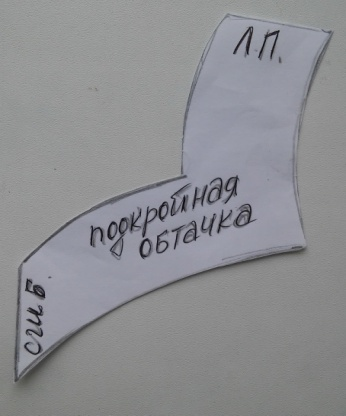 Л.П.
подкройная
обтачка
сгиб.